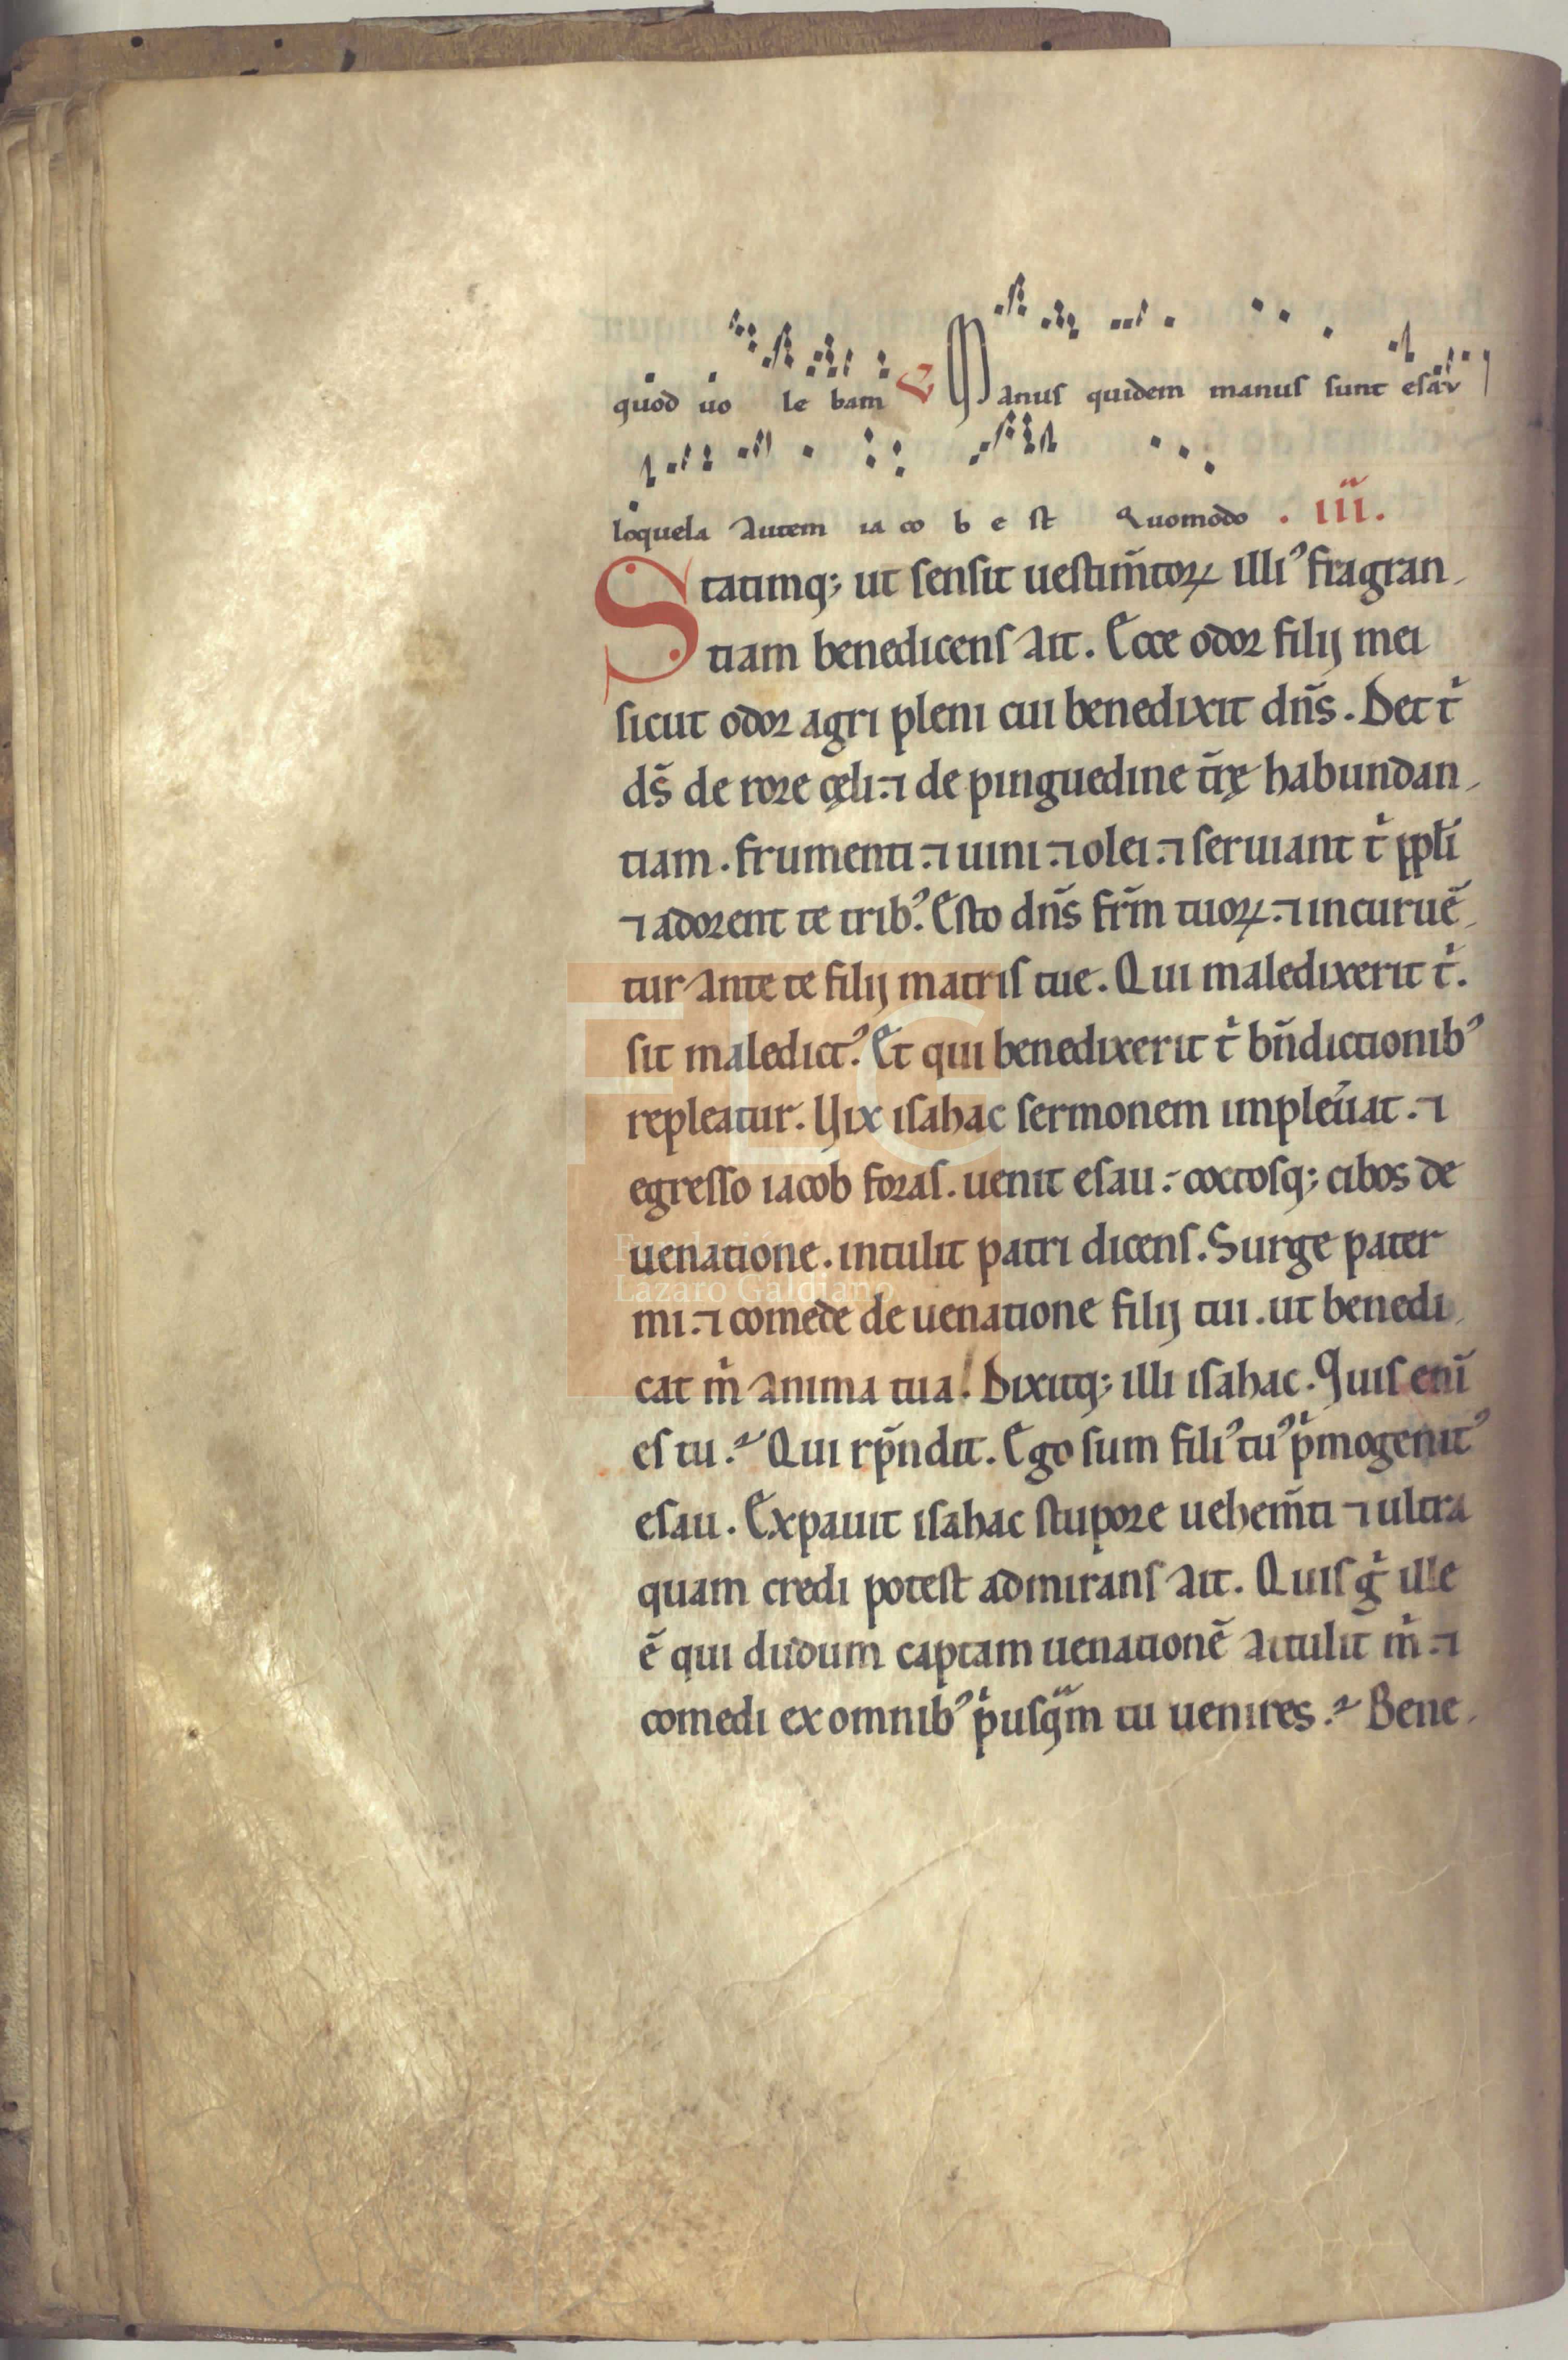 quod uo le bam ℣ Manus quidem manus sunt esau
loquela autem ia co b e st Quomodo . iii.
Statimq; ut sensit uestim̄toꝝ illi⁹ fragran
tiam benedicens ait. Ecce odor filij mei
sicut odor agri pleni cui benedixit dn̄s. Det t̾
ds̄ de rore cęli. ⁊ de pinguedine t̄rę habundan
tiam. frumenti. ⁊ uini. ⁊ olei. ⁊ seruiant t̾ pp̄li
⁊ adorent te trib⁹. Esto dn̄s fr̄m tuoꝝ. ⁊ incuruē
tur ante te filij matris tue. Qui maledixerit t̾.
sit maledict⁹. Et qui benedixerit t̾ bn̄dictionib⁹
repleatur. Uix isahac sermonem impleu̾at. ⁊
egresso iacob foras. uenit esau. coctosq; cibos de
uenatione. intulit patri dicens. Surge pater
mi. ⁊ comede de uenatione filij tui. ut benedi
cat m̾ anima tua. Dixitq; illi isahac. Quis eni̅
es tu? Qui rp̄ndit. Ego sum fili⁹ tu⁹ p̾mogenit⁹
esau. Expauit isahac stupore uehem̄ti ⁊ ultra
quam credi potest admirans ait. Quis g̾ ille
ē qui dudum captam uenationē attulit m̾. ⁊
comedi ex omnib⁹ p̾usq̄m tu uenires? Bene
FLG
Lázaro Galdiano